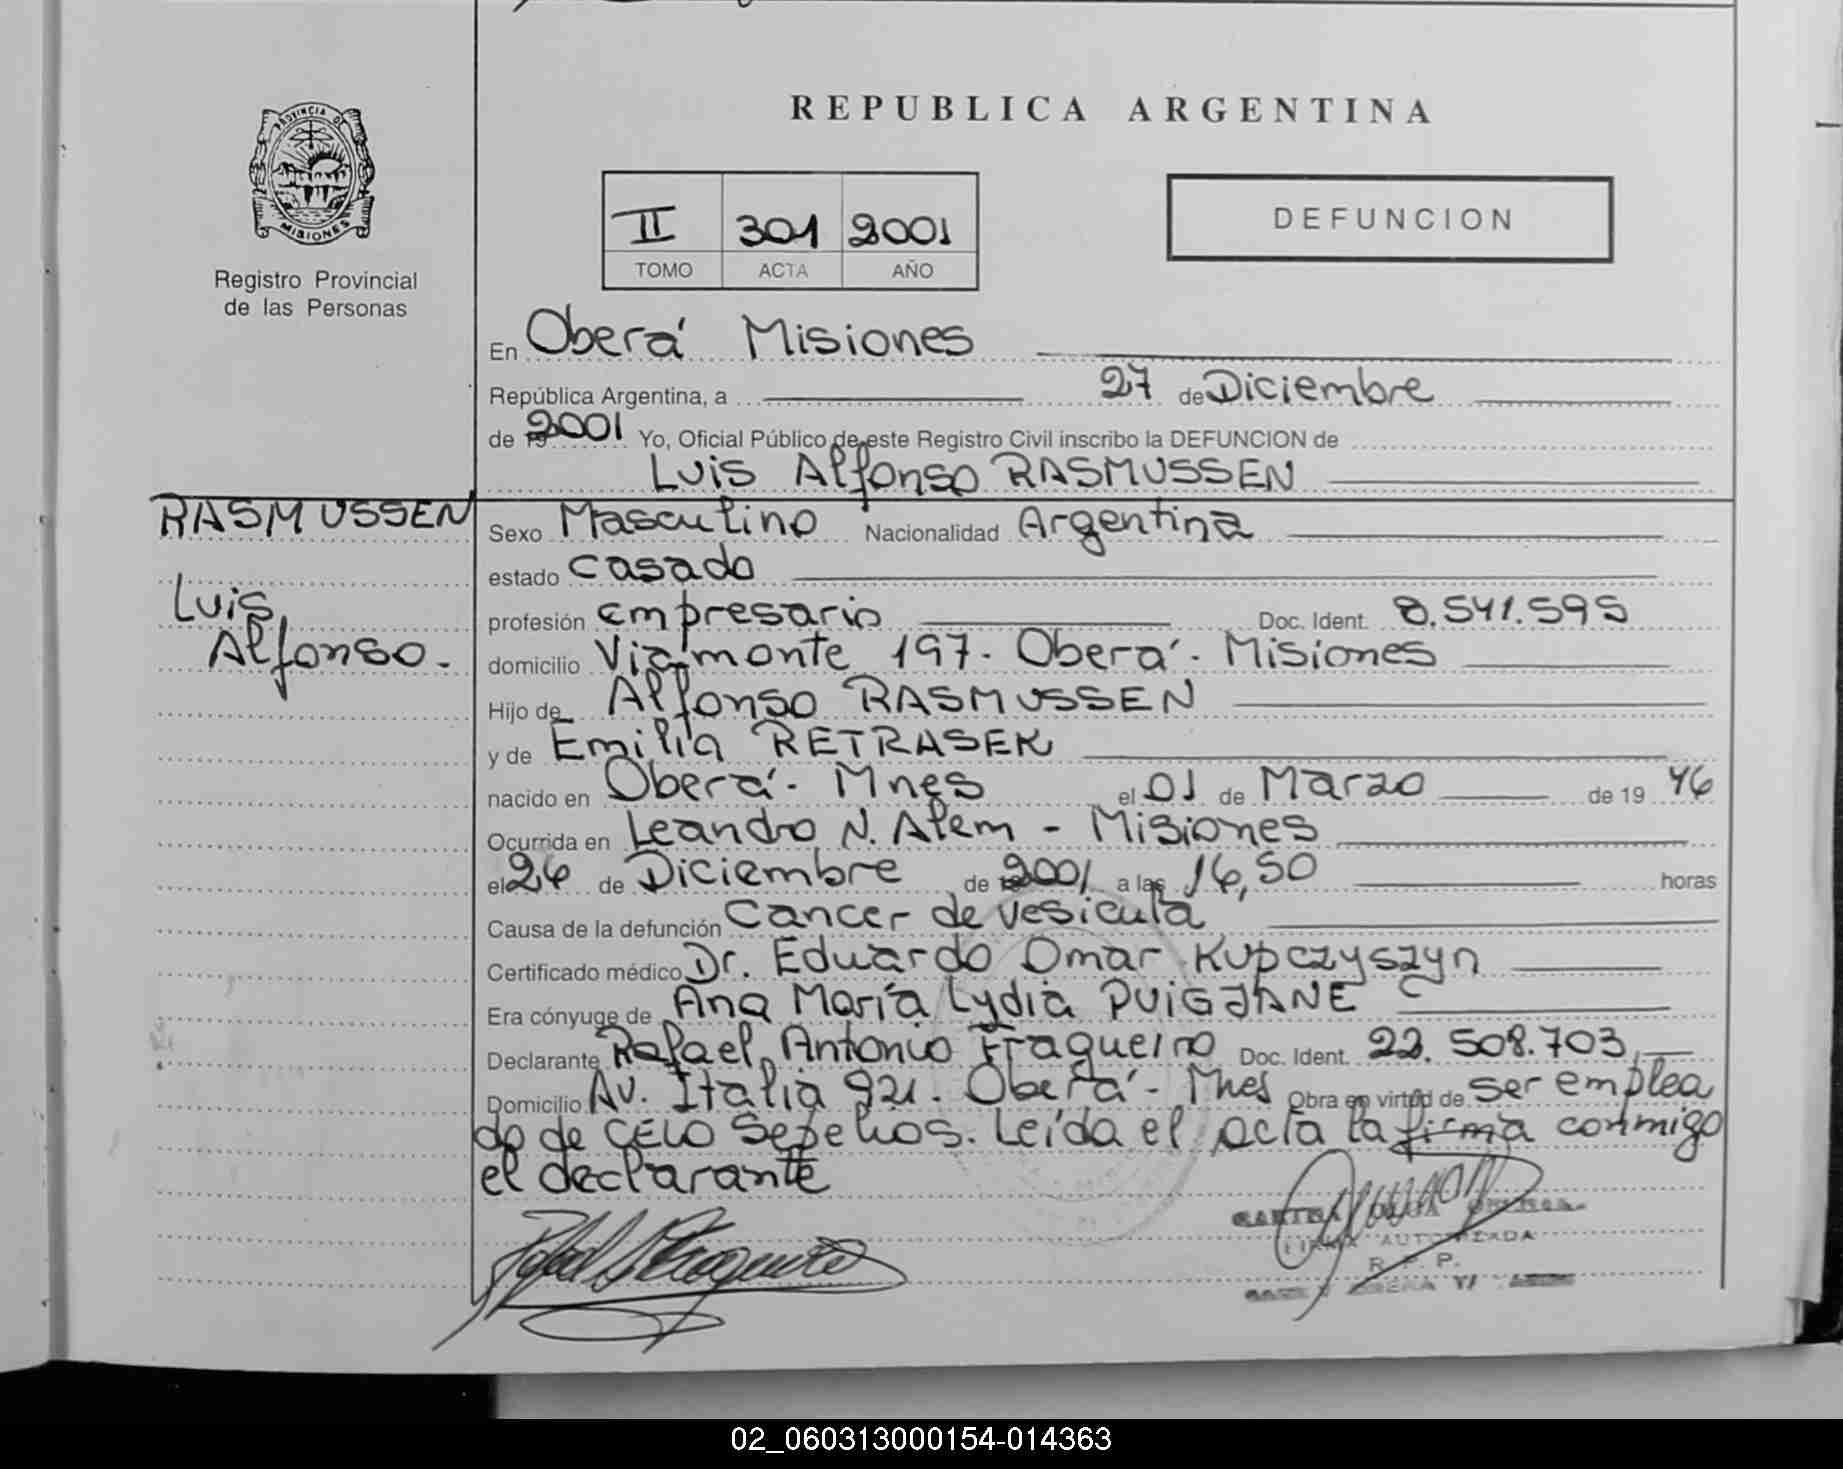 REPUBLICA ARGENTINA
PROVINCIA DE
MISIONES
Registro Provincial
de las Personas
II 301 2001
TOMO ACTA AÑO
DEFUNCION
En Oberá Misiones
República Argentina, a 27 de Diciembre
de 2001 Yo, Oficial Público de este Registro Civil inscribo la DEFUNCION de
Luis Alfonso RASMUSSEN
RASMUSSEN
Luis
Alfonso.
Sexo Masculino Nacionalidad Argentina
estado casado
profesión empresario Doc. Ident. 8.541.595
domicilio Viamonte 197. Oberá. Misiones
Hijo de Alfonso RASMUSSEN
y de Emilia RETRASEK
nacido en Oberá. Mnes el 01 de Marzo de 19 46
Ocurrida en Leandro N. Alem - Misiones
el 26 de Diciembre de 2001 a las 16,50 horas
Causa de la defunción Cancer de vesicula
Certificado médico Dr. Eduardo Omar Kupczyszyn
Era cónyuge de Ana María Lydia PUIGJANE
Declarante Rafael Antonio Fragueiro Doc. Ident. 22.508.703
Domicilio Av. Italia 921. Oberá - Mnes Obra en virtud de ser emplea
do de CELO Sepelios. Leída el acta la firma conmigo
el declarante
FIRMA AUTORIZADA
R. P. P.
02_060313000154-014363